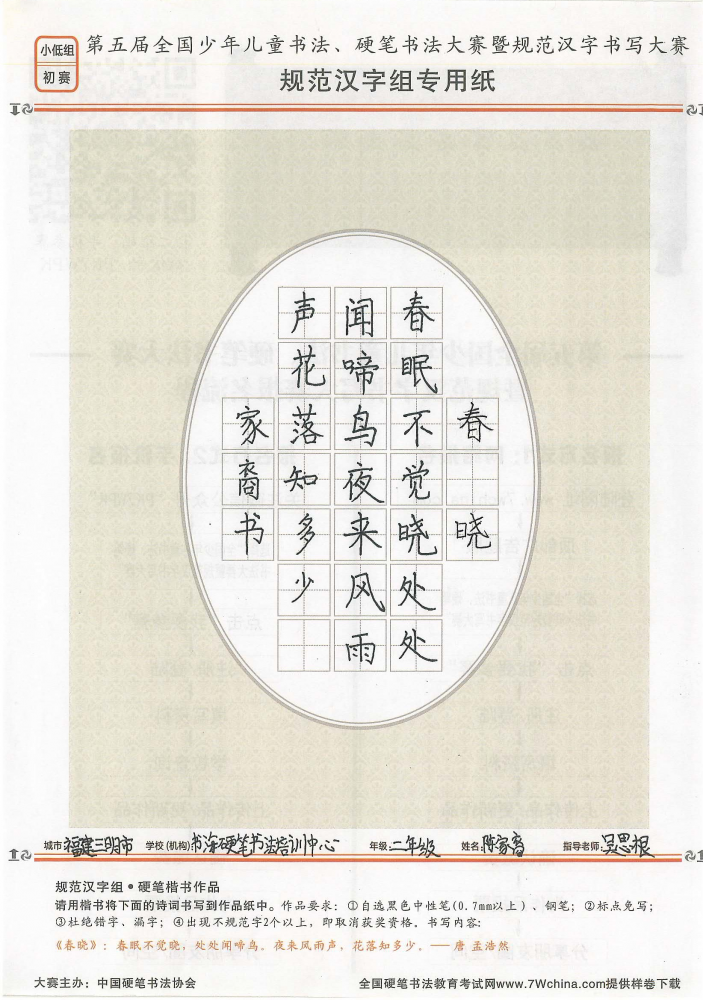 小低组
初赛
第五届全国少年儿童书法、硬笔书法大赛暨规范汉字书写大赛
规范汉字组专用纸
春晓
春眠不觉晓处处
闻啼鸟夜来风雨
声花落知多少
家裔书
城市 福建三明市 学校(机构) 书涂硬笔书法培训中心 年级 二年级 姓名 陈家裔 指导老师: 吴思根
规范汉字组·硬笔楷书作品
请用楷书将下面的诗词书写到作品纸中。作品要求：①自选黑色中性笔(0.7mm以上)、钢笔；②标点免写；
③杜绝错字、漏字；④出现不规范字2个以上，即取消获奖资格。书写内容：
《春晓》：春眠不觉晓，处处闻啼鸟。夜来风雨声，花落知多少。——唐 孟浩然
大赛主办：中国硬笔书法协会
全国硬笔书法教育考试网www.7Wchina.com提供样卷下载